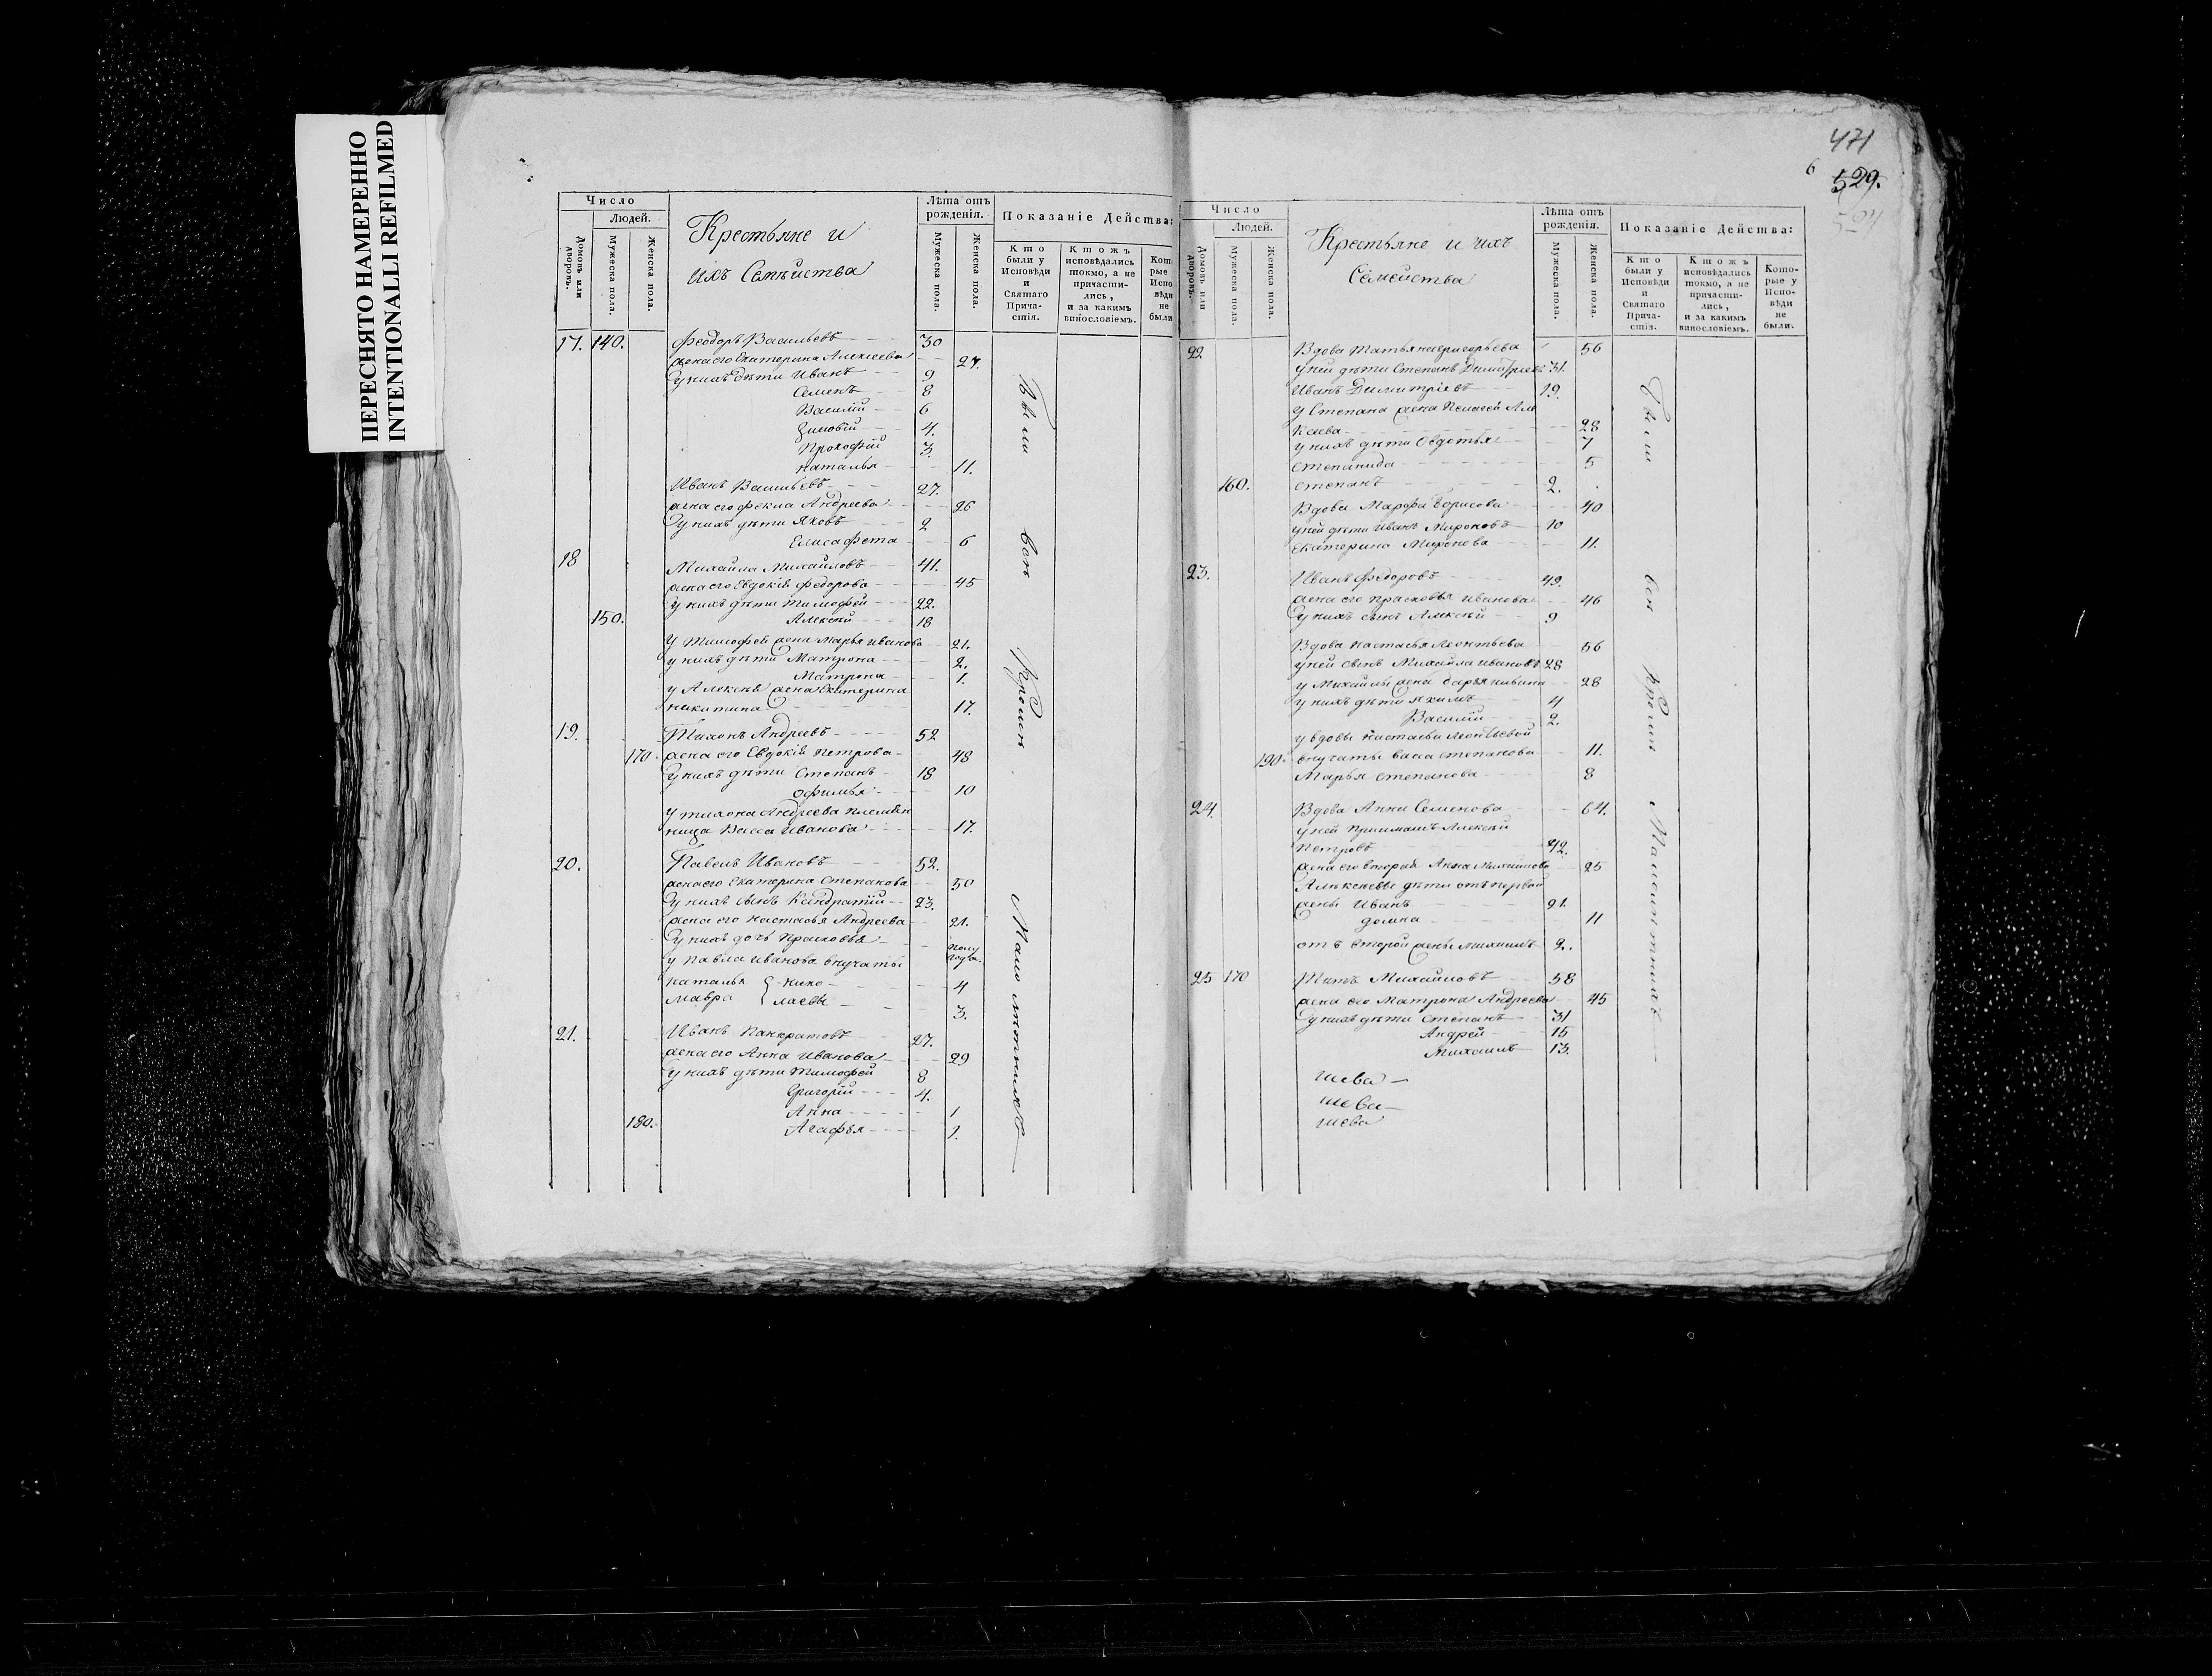 ПЕРЕСНЯТО НАМЕРЕННО
INTENTIONALLI REFILMED
Число
Людей.
Домовъ или дворовъ.
Мужеска пола.
Женска пола.
Крестьяне и
ихъ Семейства
Лѣта отъ рожденія.
Мужеска пола.
Женска пола.
Показаніе Действа:
Кто были у Исповѣди и Святаго Причастія.
Ктожъ исповѣдались токмо, а не причастились, и за какимъ винословіемъ.
Кото рые Испо вѣди не были
17. 140. Феодоръ Васильевъ 30
жена его Екатерина Алексеева 27.
у нихъ дѣти Иванъ 9
Семенъ 8
Василій 6
Зиновій 4.
Прокофій 3.
Наталья 11.
Иванъ Васильевъ 27.
жена его Фекла Андреева 26
у нихъ дѣти Яковъ 2
Елисафета 6
18 Михайла Михайловъ 41.
жена его Евдокія Федорова 45
у нихъ дѣти Тимофей 22.
150. Алексѣй 18
у Тимофея жена Марья Иванова 21.
у нихъ дѣти Матрона 2.
Матрона 1.
у Алексѣя жена Екатерина
Никитина 17.
19. Тихонъ Андреевъ 52
170. жена его Евдокія Петрова 48
у нихъ дѣти Степанъ 18
Офимья 10
у Тихона Андреева племян
ница Васса Иванова 17.
20. Павелъ Ивановъ 52.
жена его Екатерина Степанова 50
у нихъ сынъ Кандратій 23.
жена его Настасья Андреева 21.
у нихъ дочь Прасковья полу
года.
у Павла Иванова внучаты
Наталья } Нико 4
Мавра } лаевы 3.
21. Иванъ Панкратовъ 27.
жена его Анна Иванова 29
у нихъ дѣти Тимофей 8
Григорій 4.
Анна 1
180. Агафья 1.
Были всѣ Кромѣ Малолѣтнихъ
471
6
529.
524
Число
Людей.
Домовъ или дворовъ.
Мужеска пола.
Женска пола.
Крестьяне и ихъ
Семейства
Лѣта отъ рожденія.
Мужеска пола.
Женска пола.
Показаніе Действа:
Кто были у Исповѣди и Святаго Причастія.
Ктожъ исповѣдались токмо, а не причастились, и за какимъ винословіемъ.
Кото-рые у Испо-вѣди не были.
22 Вдова Татьяна Григорьева 56
у ней дѣти Степанъ Димитріевъ 31.
Иванъ Димитріевъ 19.
у Степана жена Пелагея Але
ксеева 28
у нихъ дѣти Овдотья 7
Степанида 5
160. Степанъ 2.
Вдова Марфа Борисова 40
у ней дѣти Иванъ Мироновъ 10
Екатерина Миронова 11.
23. Иванъ Федоровъ 49.
жена его Прасковья Иванова 46
у нихъ сынъ Алексѣй 9
Вдова Настасья Леонтьева 56
у ней сынъ Михайла Ивановъ 28
у Михайлы жена Дарья 28
у нихъ дѣти Яхимъ 4
Василій 2.
у вдовы Настасьи Леонтьевой
190. внучаты Васса Степанова 11.
Марья Степанова 8
24. Вдова Анна Семенова 64.
у ней примакъ Алексѣй
Петровъ 42.
жена его вторая Анна Михайлова 25
Алексѣевы дѣти отъ первой
жены Иванъ 21.
Домна 11
отъ второй жены Михаилъ 2.
25 170 Титъ Михайловъ 58
жена его Матрона Андреева 45
у нихъ дѣти Степанъ 31
Андрей 15
Михаилъ 13.
Были всѣ Кромѣ Малолѣтнихъ